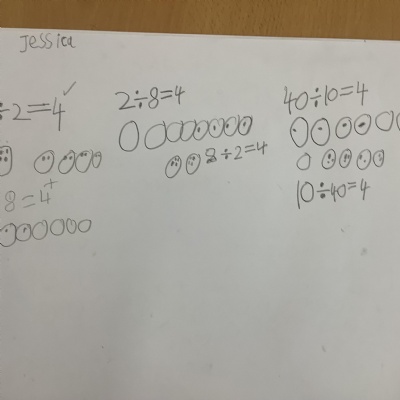 Jessica
÷2=4
8=4
2÷8=4
8÷2=4
40÷10=4
10÷40=4